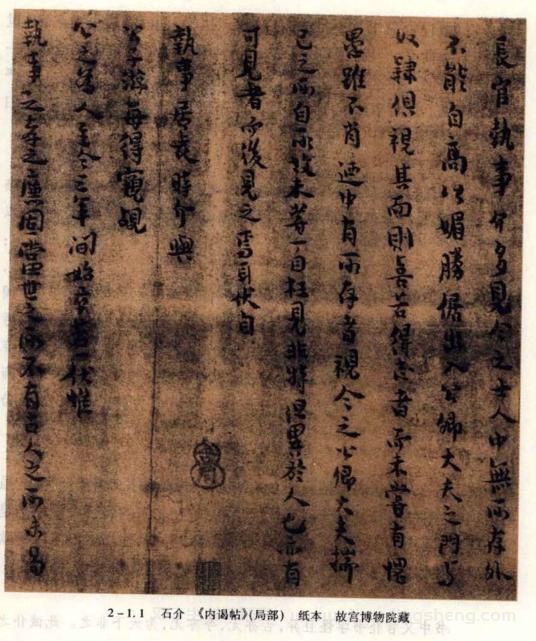 長官執事介多見今之士人中無所存外
不能自高以媚勝倨出入公卿大夫之門與
奴隸俱視其面則喜若得志者而未嘗有愧
愚雖不肖迺中有所存者視今之公卿大夫揣
己之而自承故未嘗一自枉見非特但異於人也亦有
可見者而後見之焉耳伏自
執事居喪時介與
公子游每得窺覘
公之為人至今三年間始卒若一伏惟
執事之孝之廉固當世之所不有古人之所未曷
2-1.1 石介 《内谒帖》(局部) 纸本 故宫博物院藏